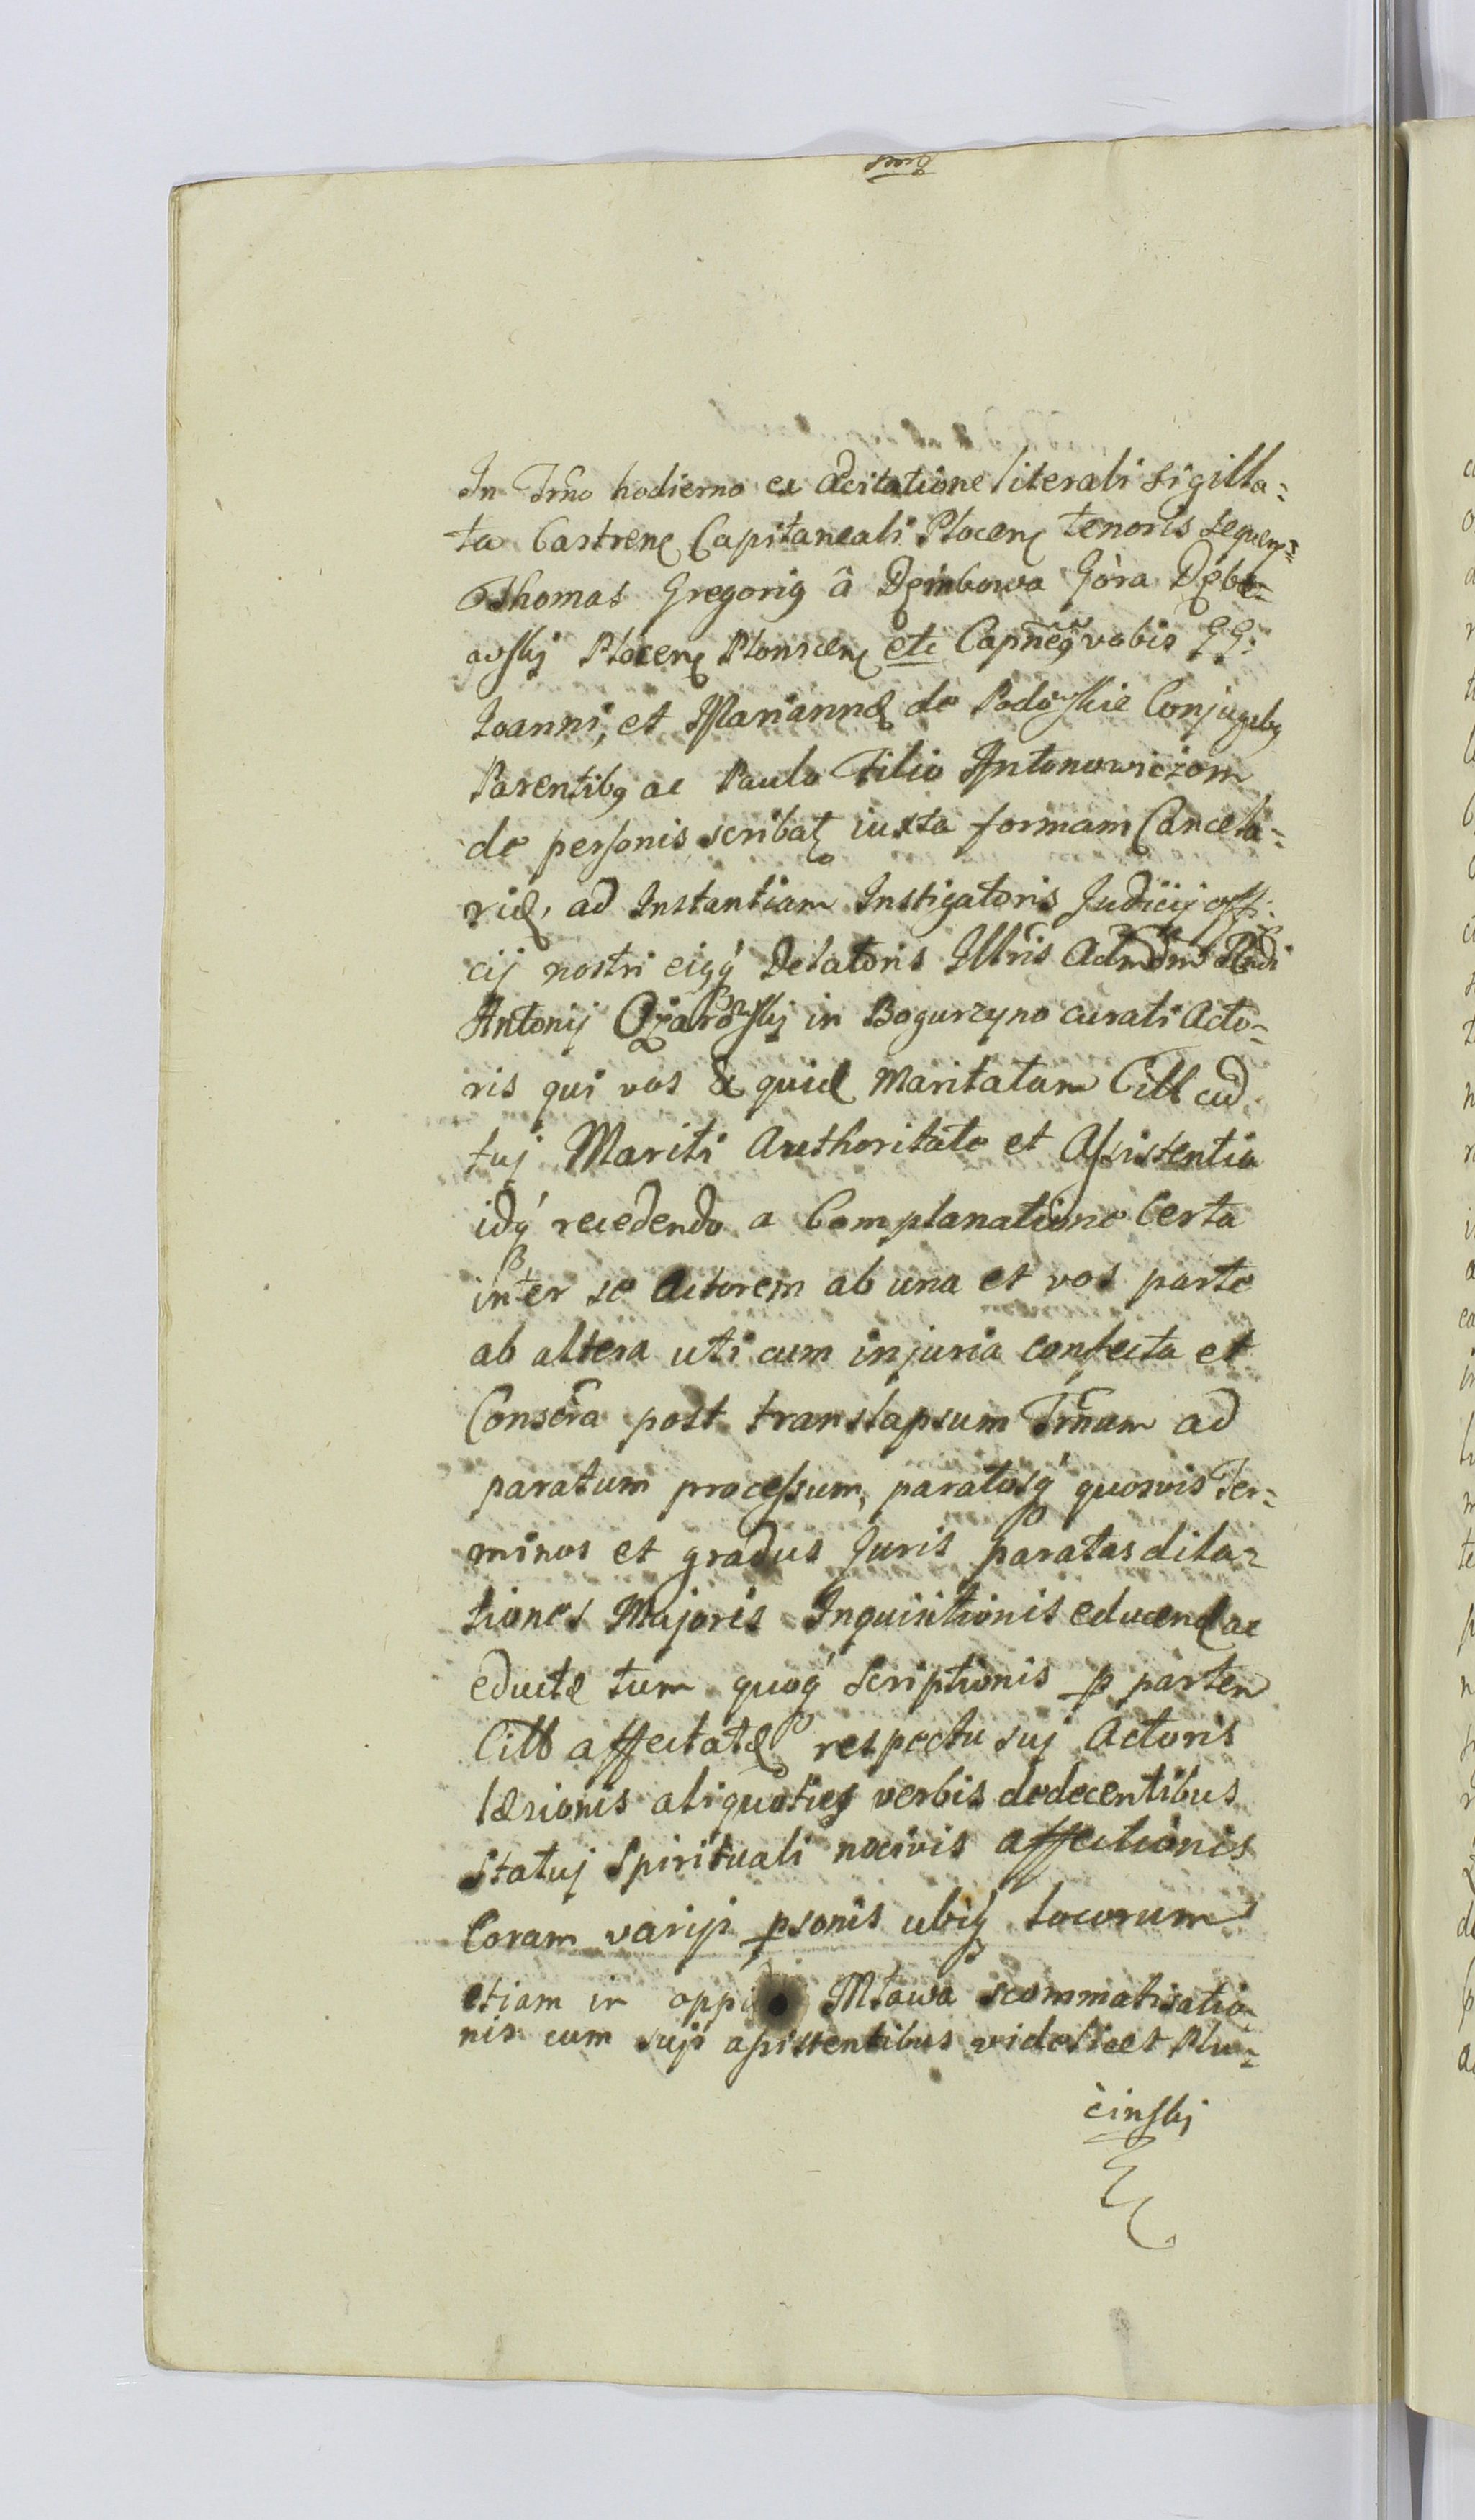 In Trno hodierno ex adcitatione literali sigilla=
ta Castren Capitaneali Plocen tenoris sequen=
Thomas Gregorig â Dęmbowa Góra Dębo=
wskj Plocen Plonscen etc Capneg vobis GG:
Joanni, et Mariannæ de Podowskie Conjugibg
Parentibg ac Paulo Filio Antonowiczom
de personis scribat iuxta formam Cancela=
riæ, ad Instantiam Instigatoris Judicij offi=
cij nostri eigq Delatoris Illris Admdm Rdi
Antonij Ożarowskj in Bogurzyno curati Acto=
ris qui vos & quidę Maritatam Citt cũ
tuj Mariti Authoritate et Assistentia
idq recedendo a Complanatione Certa
inter se Actorem ab una et vos parte
ab altera uti cum injuria confecta et
Conscra post translapsum Trnum ad
paratum processum, paratosq quosvis Ter=
minos et gradus Juris paratas dila=
tiones Majoris Inquisitionis educendæ ac
eductæ tum quoq Scriptionis p parten
Citt affectatæ respectu suj Actoris
læsionis aliquoties verbis dedecentibus
statuj Spirituali nocivis affectionis
Coram varijs psonis ubiq locorum
etiam in oppi Mława scommatisatio=
nis cum sujs assistentibus videlicet Plu=
cinskj